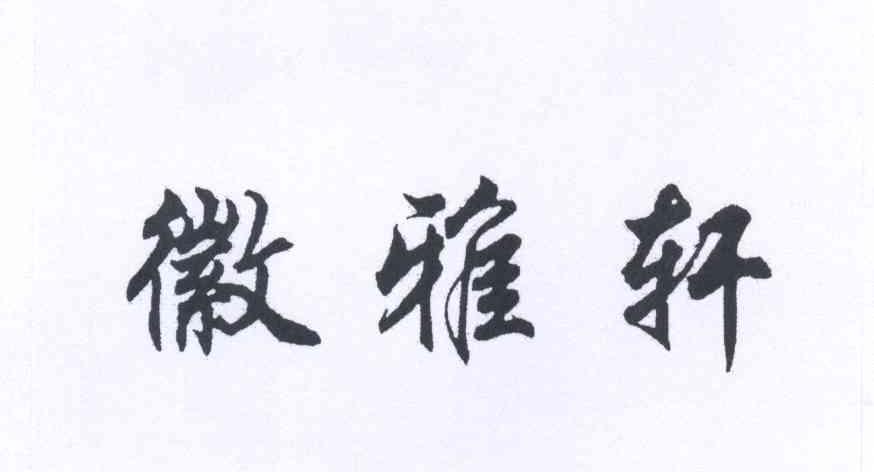 徽雅轩